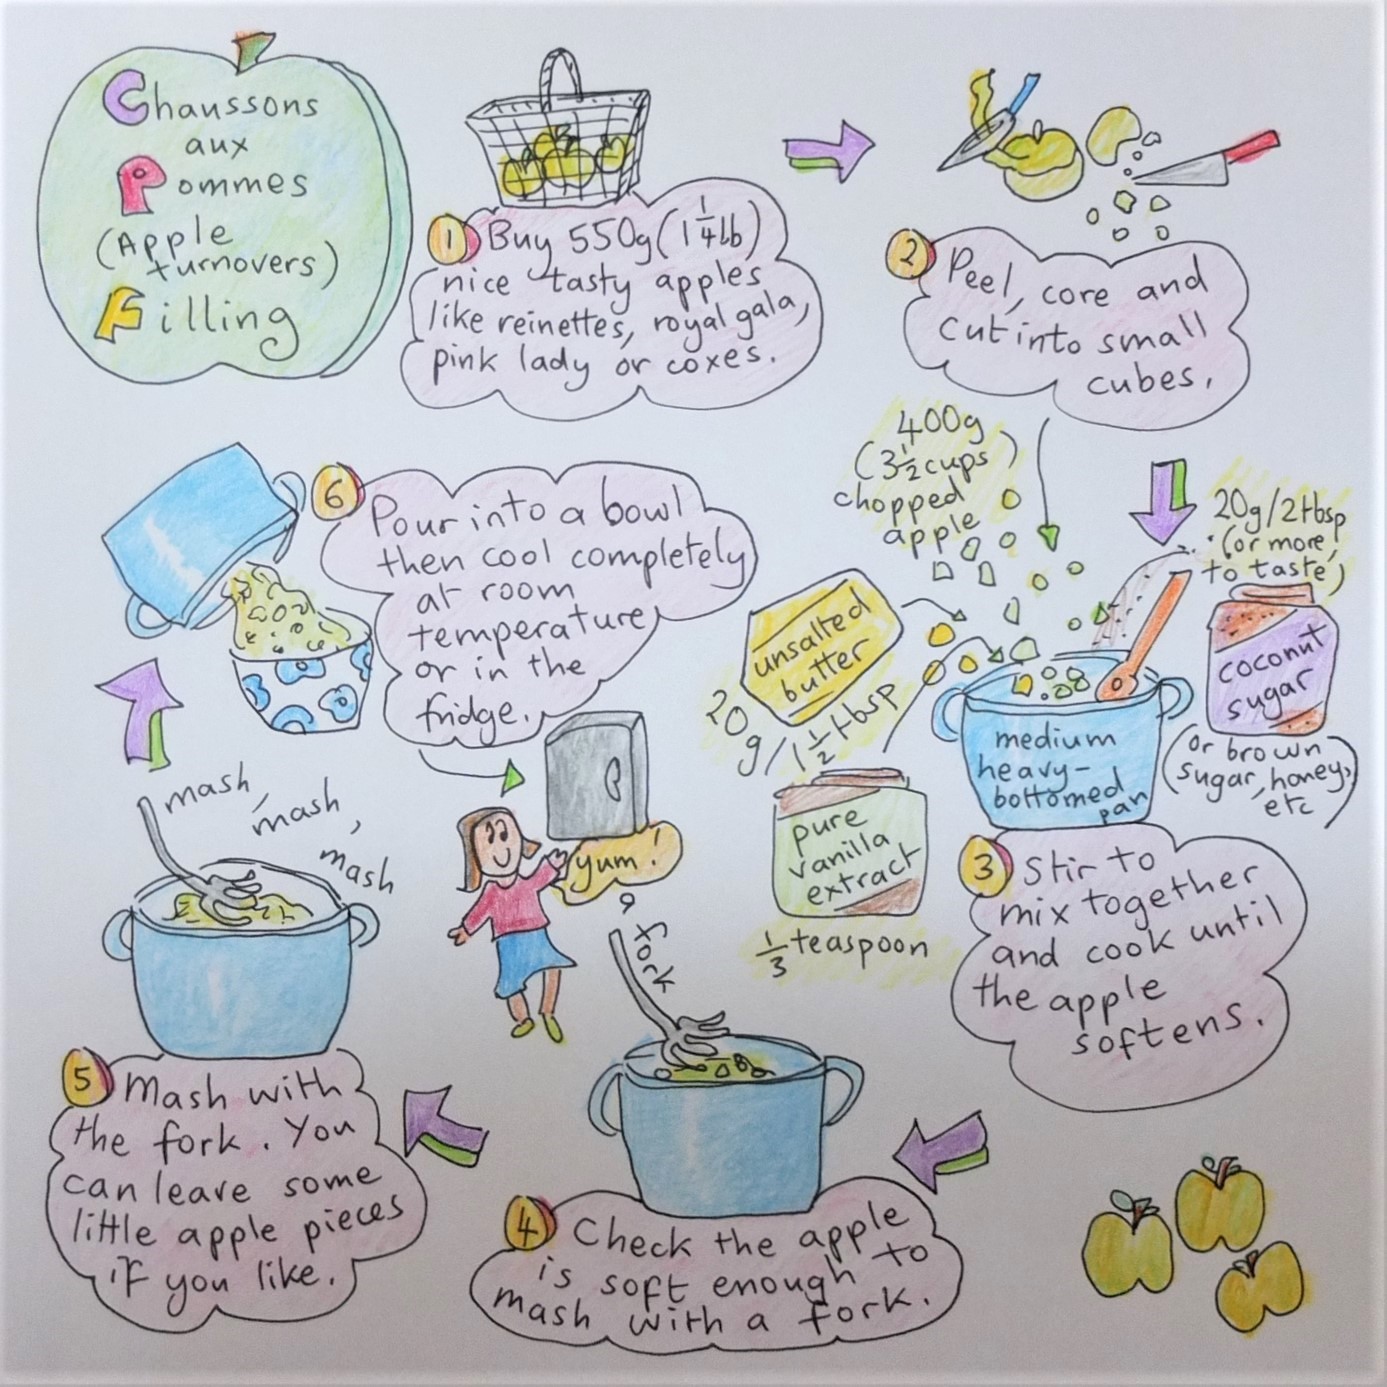 Chaussons
aux
Pommes
(Apple
turnovers)
Filling
1 Buy 550g (1 1/4 lb)
nice tasty apples
like reinettes, royal gala,
pink lady or coxes.
2 Peel, core and
cut into small
cubes.
400g
(3 1/2 cups)
chopped
apple
20g/2tbsp
(or more,
to taste)
unsalted
butter
20
g/1 1/2 tbsp
coconut
sugar
(or brown
sugar, honey,
etc)
medium
heavy-
bottomed
pan
pure
vanilla
extract
1/3 teaspoon
3 Stir to
mix together
and cook until
the apple
softens.
fork
4 Check the apple
is soft enough to
mash with a fork.
mash,
mash,
mash
5 Mash with
the fork. You
can leave some
little apple pieces
if you like.
6 Pour into a bowl
then cool completely
at room
temperature
or in the
fridge.
yum!